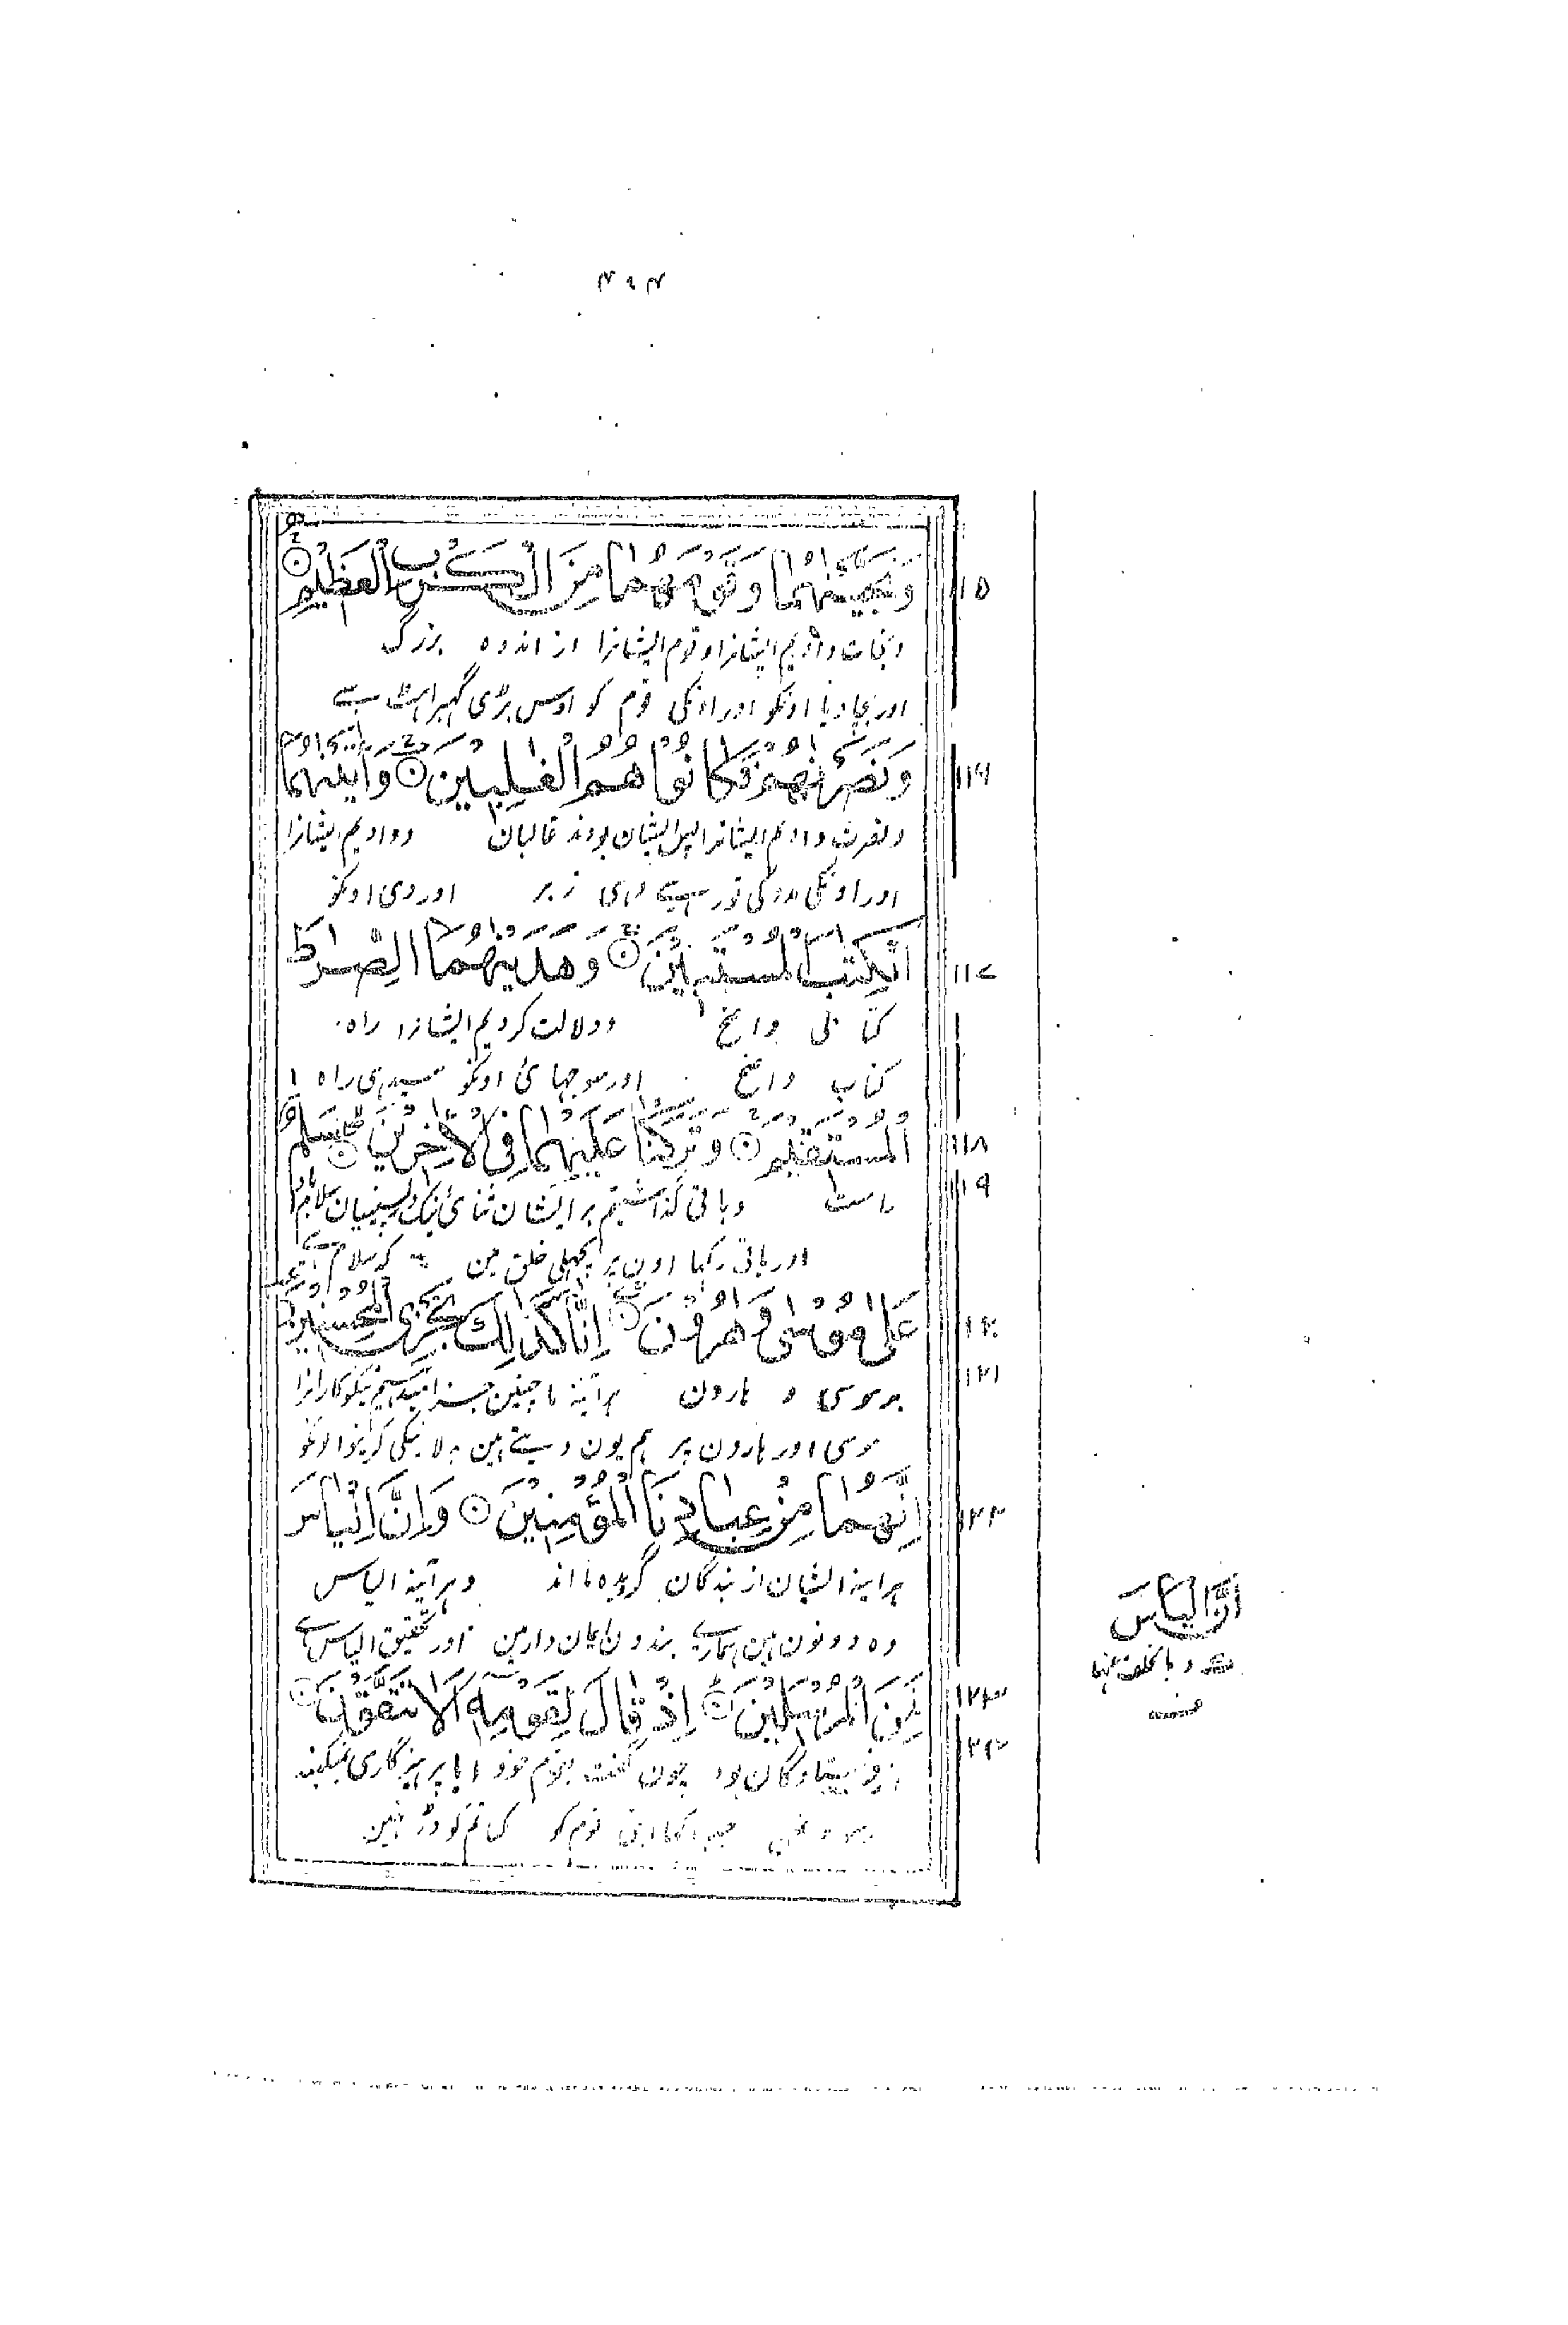 وَنَجَّيْنٰهُمَا وَقَوْمَهُمَا مِنَ الْكَرْبِ الْعَظِيْمِ
۱۱۵
ونجات دادیم ایشانرا وقوم ایشانرا از اندوه بزرگ
اور بچا دیا اونکو اور اونکی قوم کو اوس بڑی گہبراہٹ سے
وَنَصَرْنٰهُمْ فَكَانُوْا هُمُ الْغٰلِبِيْنَ وَاٰتَيْنٰهُمَا
۱۱۶
ونصرت دادیم ایشانرا پس ایشان بودند غالبان ودادیم ایشانرا
اور اونکی مدد کی تو رہے وہی زبر اور دی اونکو
الْكِتٰبَ الْمُسْتَبِيْنَ وَهَدَيْنٰهُمَا الصِّرٰطَ
۱۱۷
کتابی واضح ودلالت کردیم ایشانرا راه
کتاب واضح اور سوجہائی اونکو سیدہی راہ
الْمُسْتَقِيْمَ وَتَرَكْنَا عَلَيْهِمَا فِى الْاٰخِرِيْنَ سَلٰمٌ
۱۱۸
۱۱۹
راست وباقی گذاشتیم بر ایشان ثنای نیک در پسینیان سلام باد
اور باقی رکہا اون پر پچہلی خلق مین کہ سلام ہے
عَلٰى مُوْسٰى وَهٰرُوْنَ اِنَّا كَذٰلِكَ نَجْزِى الْمُحْسِنِيْنَ
۱۲۰
۱۲۱
بر موسی و هارون هر آئینه ما چنین جزا میدهیم نیکوکارانرا
موسی اور ہارون پر ہم یون دیتے ہین بدلا نیکی کرنیوالونکو
اِنَّهُمَا مِنْ عِبَادِنَا الْمُؤْمِنِيْنَ وَاِنَّ اِلْيَاسَ
۱۲۲
هر آینه ایشان از بندگان گرویده ما اند وهر آینه الیاس
وہ دونون ہین ہمارے بندون ایمان دار مین اور تحقیق الیاس ہے
لَمِنَ الْمُرْسَلِيْنَ اِذْ قَالَ لِقَوْمِهٖ اَلَا تَتَّقُوْنَ
۱۲۳
۱۲۴
از فرستادگان بود چون گفت بقوم خود ایا پرهیزگاری نمیکنید
جب کہا اپنی قوم کو کیا تمکو ڈر نہین
اِنَّ الْيَاسَ